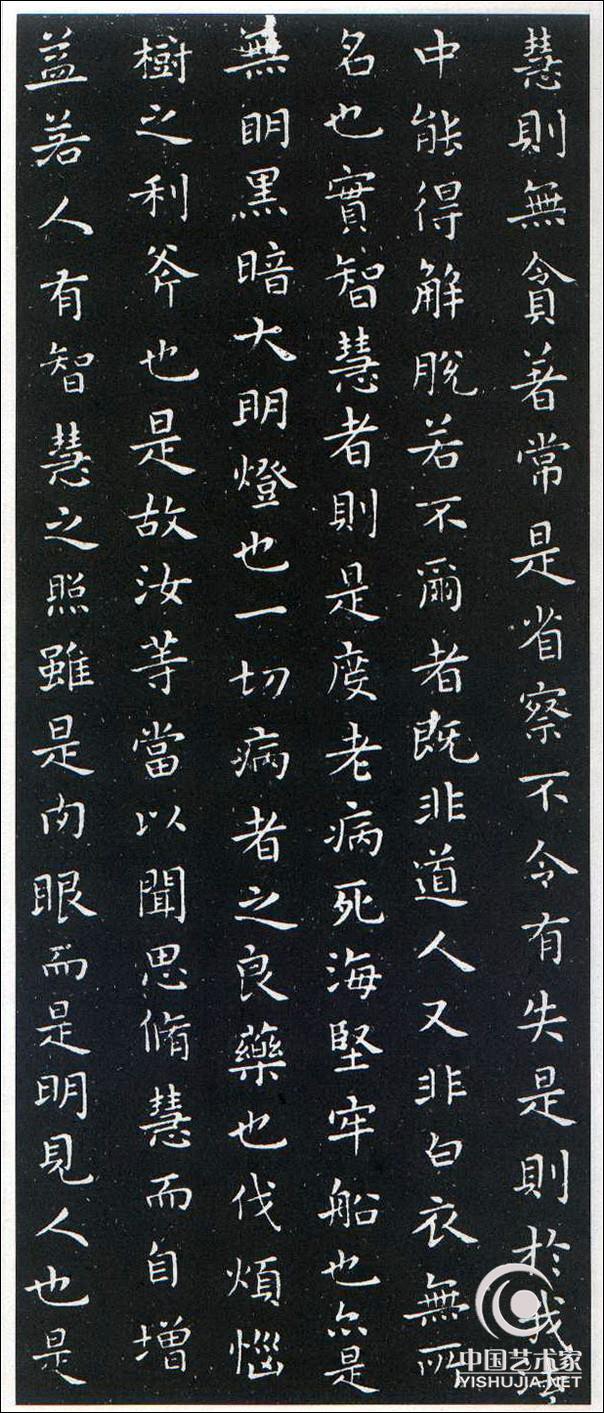 慧則無貪著常是省察不令有失是則於我法
中能得解脫若不爾者既非道人又非白衣無所
名也實智慧者則是度老病死海堅牢船也亦是
無眀黒暗大眀燈也一切病者之良藥也伐煩惱
樹之利斧也是故汝等當以聞思脩慧而自增
益若人有智慧之照雖是肉眼而是明見人也是
中国艺术家
YISHUJIA.NET